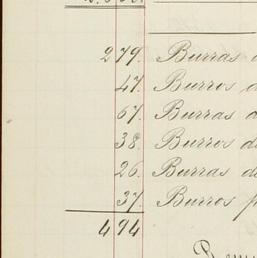 279. Burras d
47. Burros d
67. Burras d
38. Burros de
26. Burras de
37. Burros p
494